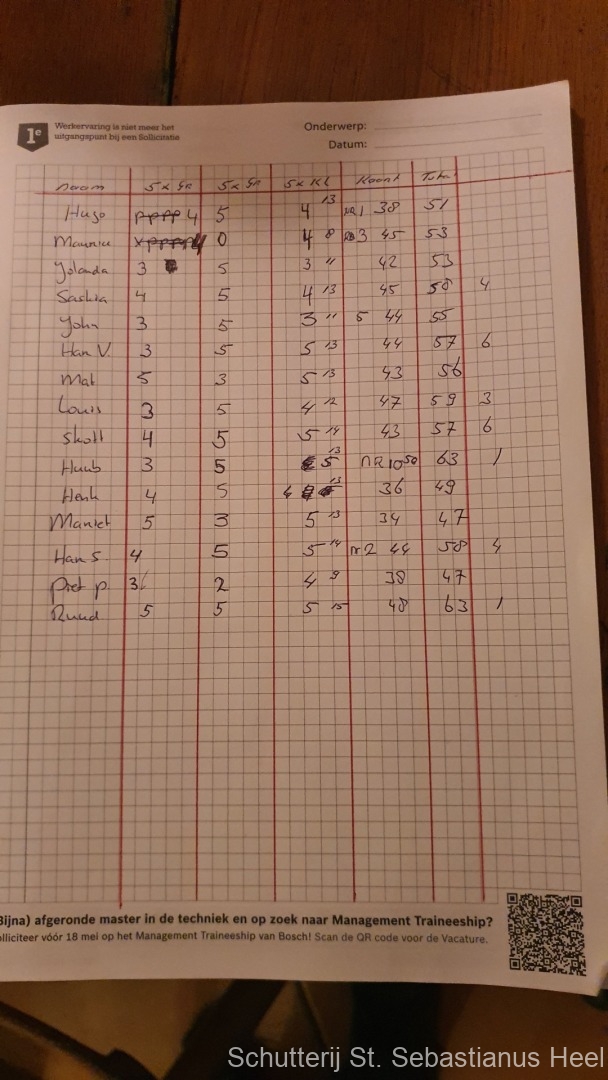 1e
Werkervaring is niet meer het
uitgangspunt bij een Sollicitatie
Onderwerp:
Datum:
naam 5x Gr 5x Gr 5x Kl Kaart
Hugo 4 5 4 13 nr 1 38 51
0 4 8 3 45 53
Yolanda 3 5 3 11 42 53
Saskia 4 5 4 13 45 58 4
John 3 5 3 11 5 44 55
Han V. 3 5 5 13 44 57 6
Mat 5 3 5 13 43 56
Louis 3 5 4 12 47 59 3
Skott 4 5 5 14 43 57 6
Huub 3 5 5 13 nr 10 50 63 1
Henk 4 5 4 13 36 49
5 3 5 13 34 47
Han S. 4 5 5 14 nr 2 44 58 4
Piet p. 3 2 4 9 38 47
Ruud 5 5 5 15 48 63 1
Bijna) afgeronde master in de techniek en op zoek naar Management Traineeship?
olliciteer vóór 18 mei op het Management Traineeship van Bosch! Scan de QR code voor de Vacature.
Schutterij St. Sebastianus Heel